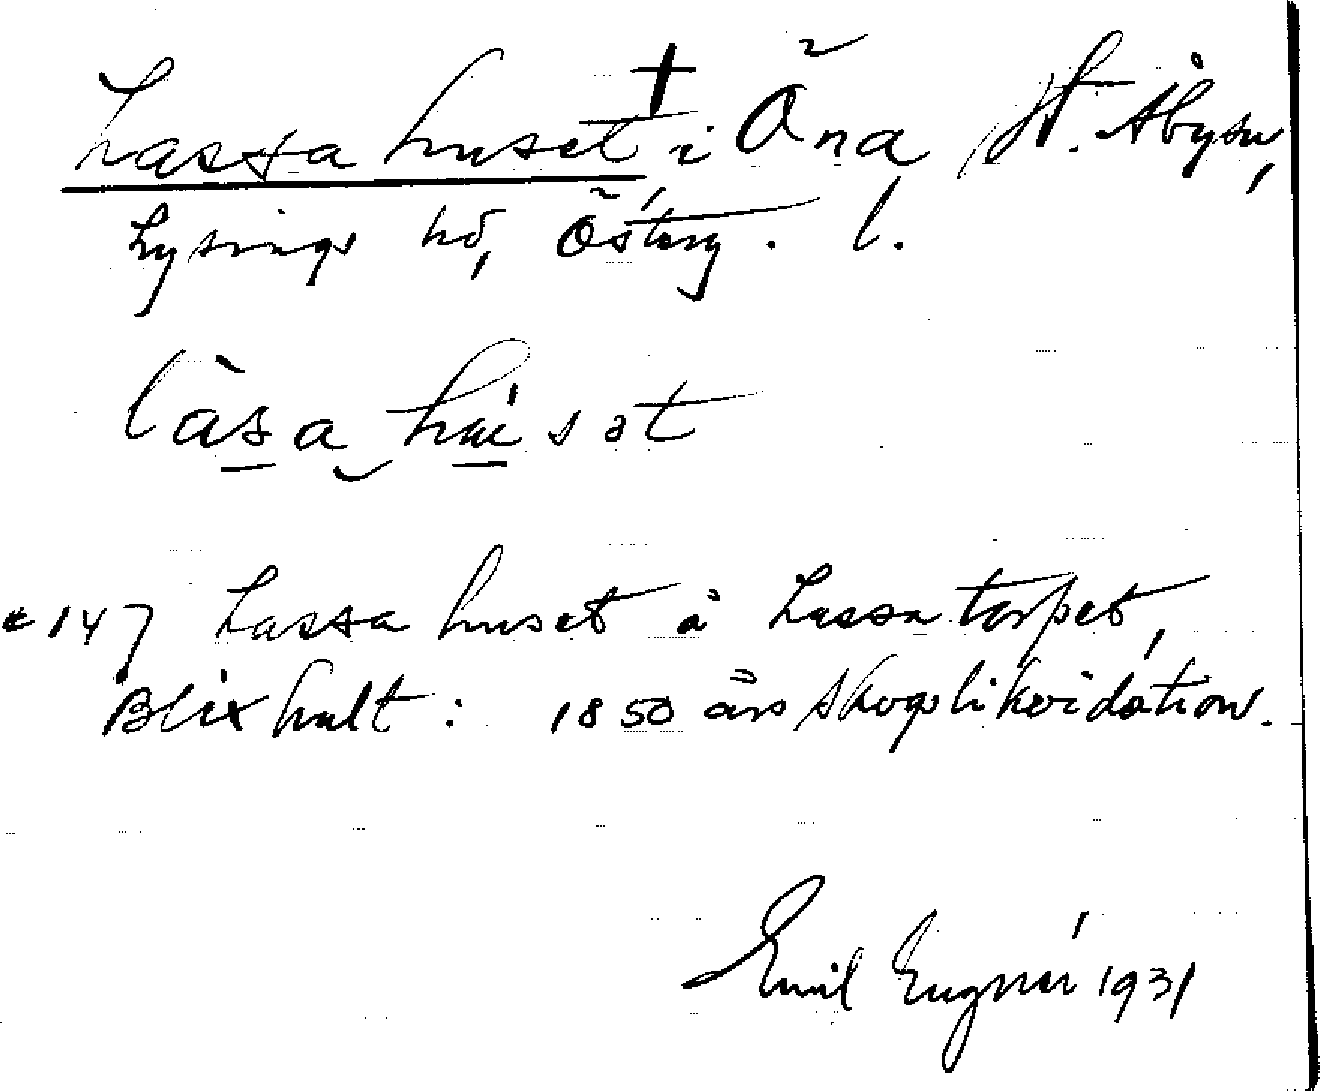 Lassa huset † i Õna St. Åby sn,
Lysings hd, Österg. l.
làsa hu̇sət
147 Lassa huset å Lassatorpet,
Blixhult: 1850 års skogslikvidation.
Emil Engnér 1931